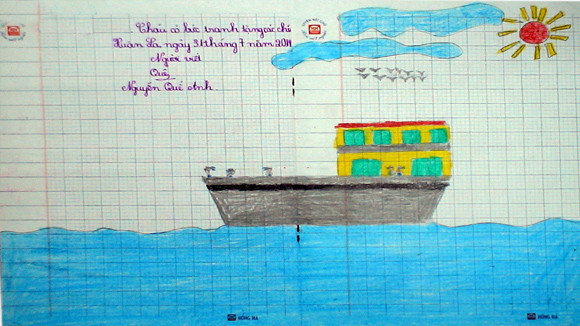 Cháu có bức tranh tặng các chú
Xuân La ngày 31 tháng 7 năm 2014
Người viết
Quế
Nguyễn Quế Anh
HỒNG HÀ
HỒNG HÀ